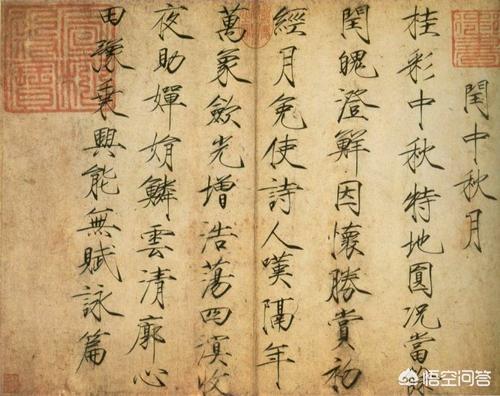 閏中秋月
桂彩中秋特地圓況當餘
閏魄澄鮮因懷勝賞初
經月免使詩人嘆隔年
萬象斂光增浩蕩四溟收
夜助嬋娟鱗雲清廓心
田豫乘興能無賦詠篇
悟空问答